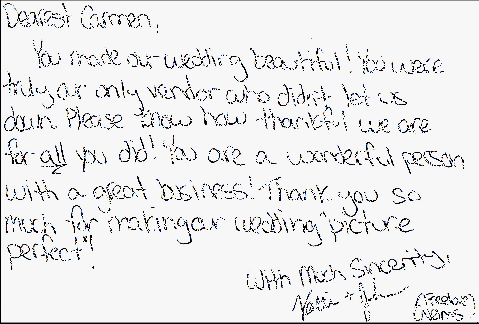 Dearest Carmen,
You made our wedding beautiful! You were
truly our only vendor who didn't let us
down. Please know how thankful we are
for all you did! You are a wonderful person
with a great business! Thank you so
much for making our wedding "picture
perfect"!
With Much Sincerity,